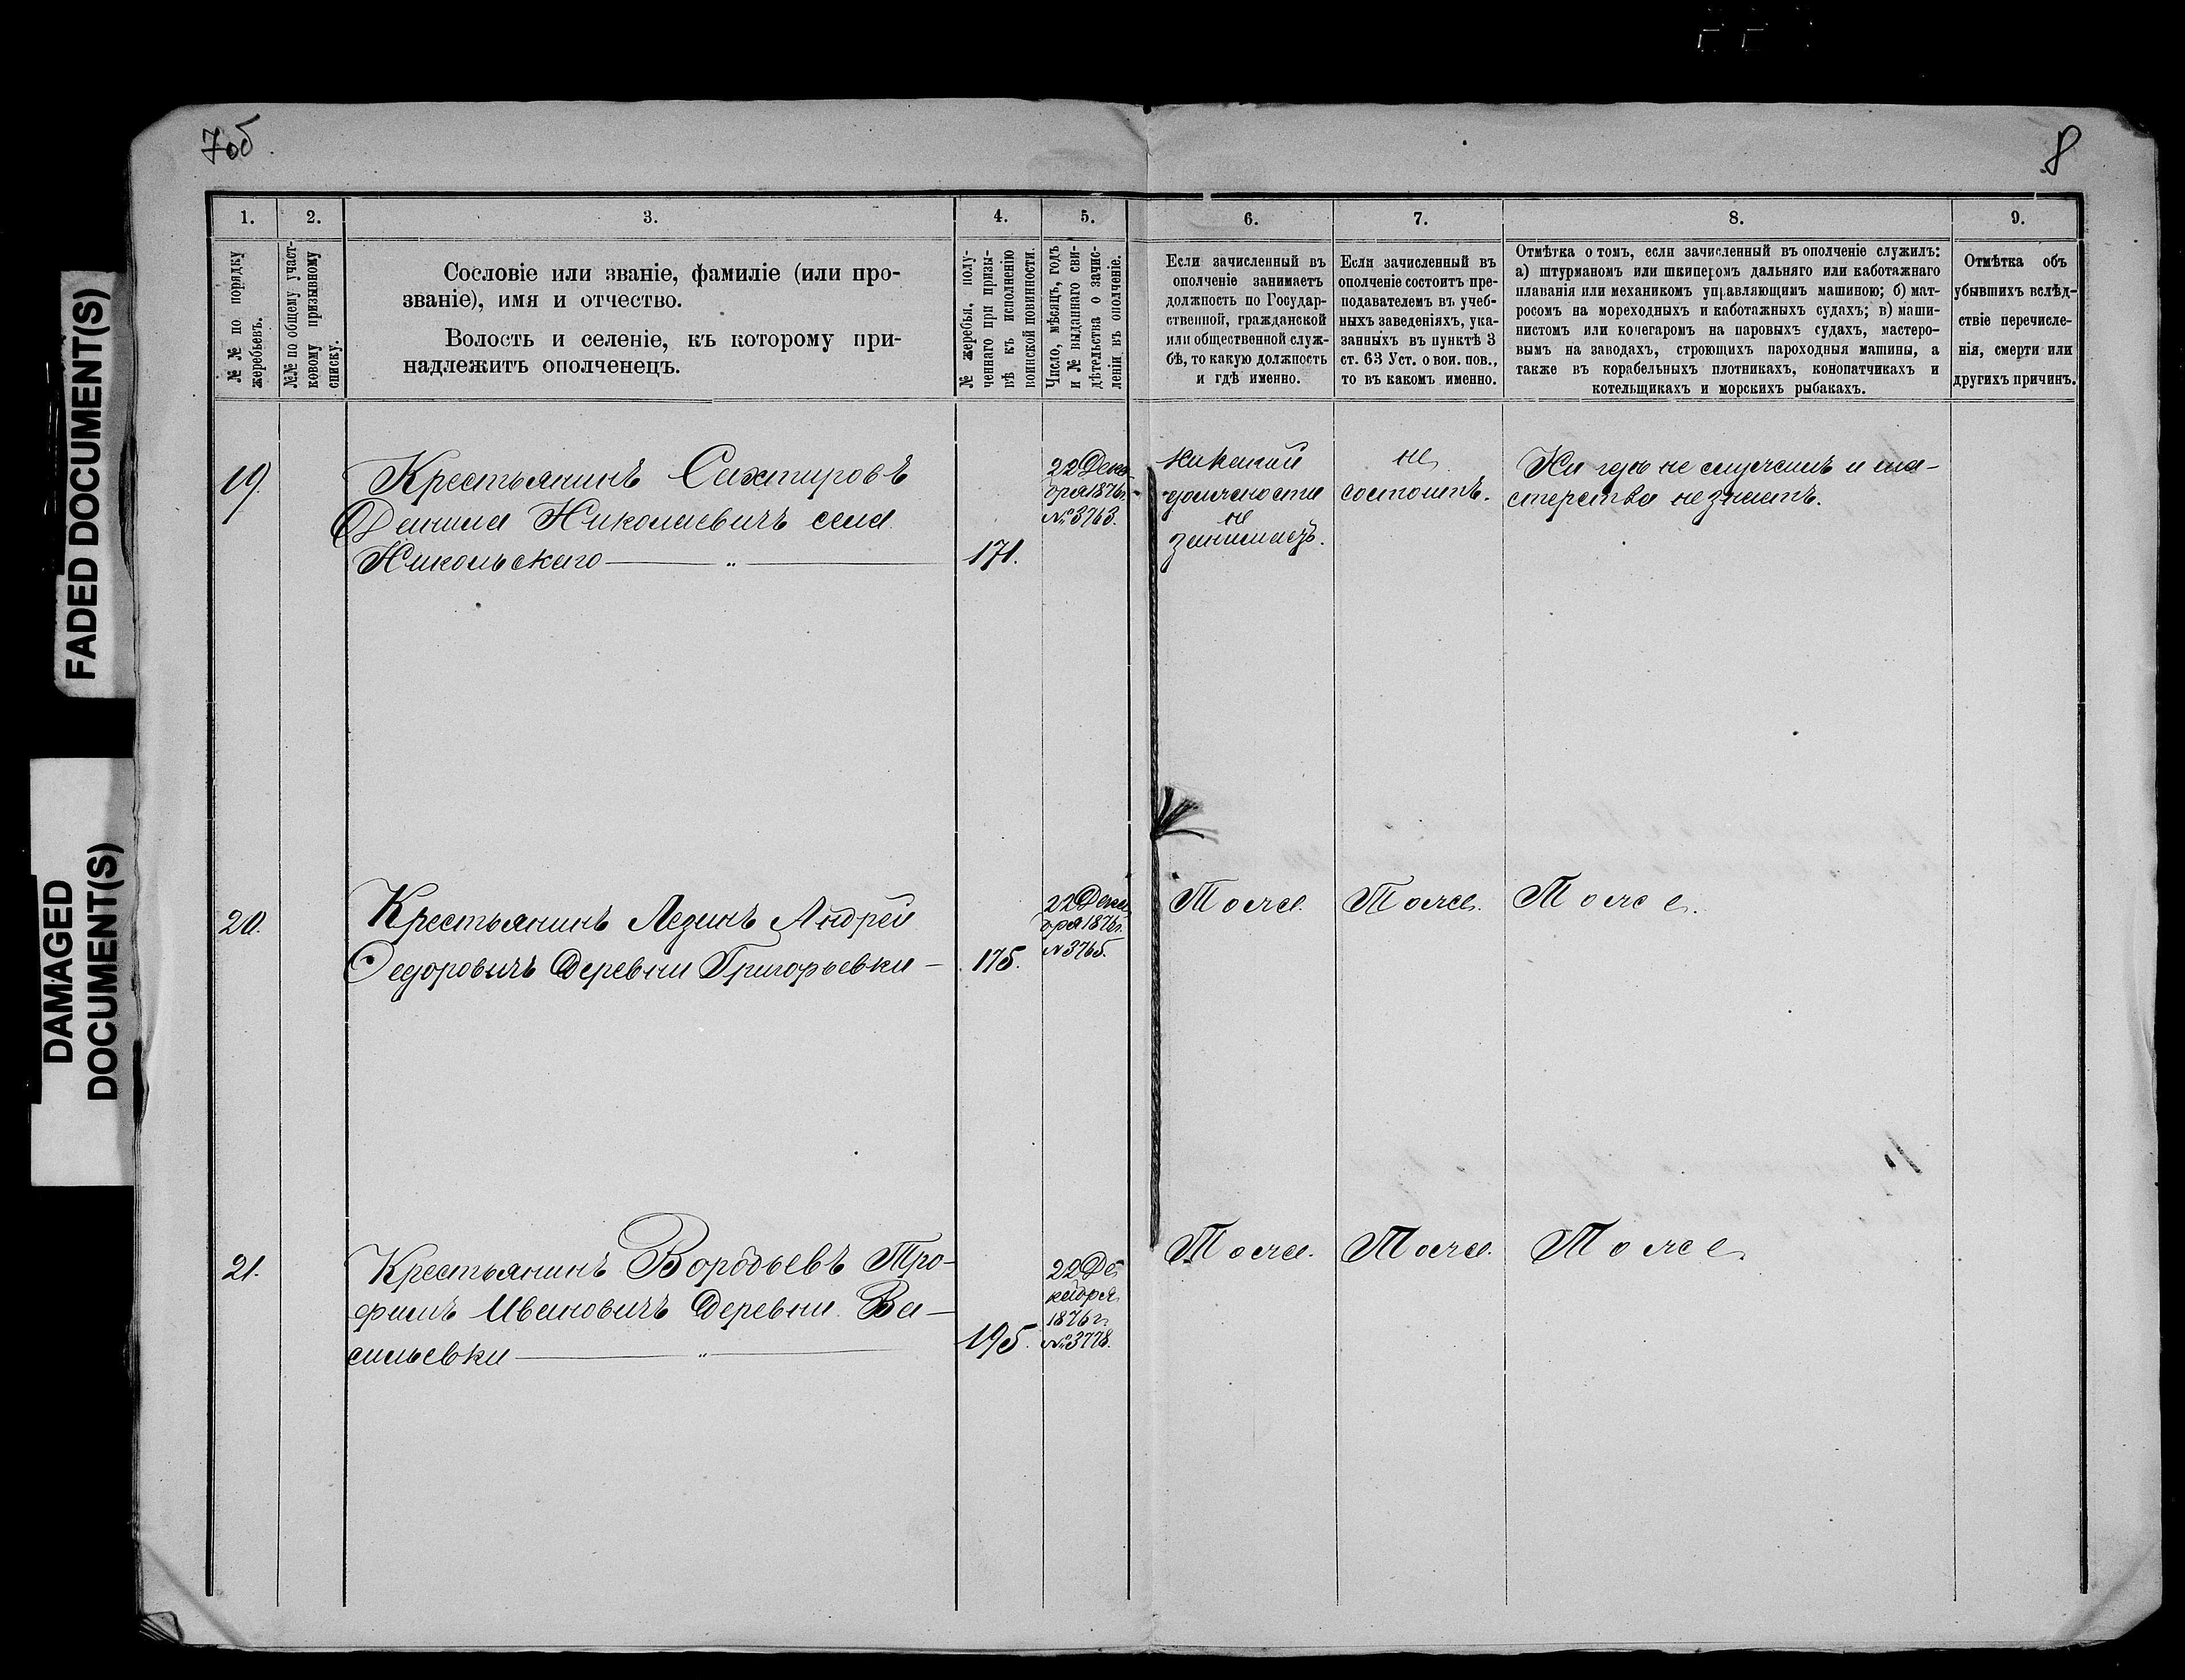 7об.
8
1.
2.
3.
4.
5.
6.
7.
8.
9.
№ № по порядку
жеребьевъ.
№№ по общему участ-
ковому призывному
списку.
Сословіе или званіе, фамиліе (или про-
званіе), имя и отчество.
Волость и селеніе, къ которому при-
надлежитъ ополченецъ.
№ жеребья, полу-
ченнаго при призы-
вѣ къ исполненію
воинской повинности.
Число, мѣсяцъ, годъ
и № выданнаго сви-
дѣтельства о зачис-
леніи въ ополченіе.
Если зачисленный въ
ополченіе занимаетъ
должность по Государ-
ственной, гражданской
или общественной служ-
бѣ, то какую должность
и гдѣ именно.
Если зачисленный въ
ополченіе состоитъ пре-
подавателемъ въ учеб-
ныхъ заведеніяхъ, ука-
занныхъ въ пунктѣ 3
ст. 63 Уст. о вои. пов.,
то въ какомъ именно.
Отмѣтка о томъ, если зачисленный въ ополченіе служилъ:
а) штурманомъ или шкиперомъ дальняго или каботажнаго
плаванія или механикомъ управляющимъ машиною; б) мат-
росомъ на мореходныхъ и каботажныхъ судахъ; в) маши-
нистомъ или кочегаромъ на паровыхъ судахъ, мастеро-
вымъ на заводахъ, строющихъ пароходныя машины, а
также въ корабельныхъ плотникахъ, конопатчикахъ и
котельщикахъ и морскихъ рыбакахъ.
Отмѣтка объ
убывшихъ вслѣд-
ствіе перечисле-
нія, смерти или
другихъ причинъ.
19.
Крестьянинъ Сахтировъ
Данила Николаевичъ села
Никольскаго
171.
22 Дека
бря 1876 г.
№ 3763.
никакой
должности
не
занимаетъ.
не
состоитъ.
Ни гдѣ не служилъ и ма-
стерства не знаетъ.
20.
Крестьянинъ Лезинъ Андрей
Федоровичъ Деревни Григорьевки
175.
22 Дека
бря 1876 г.
№ 3765.
Тоже.
Тоже.
Тоже.
21.
Крестьянинъ Воробьевъ Тро-
фимъ Ивановичъ Деревни Ва-
сильевки
195.
22 Де
кабря
1876 г.
№ 3778.
Тоже.
Тоже.
Тоже.
FADED DOCUMENT(S)
DAMAGED
DOCUMENT(S)